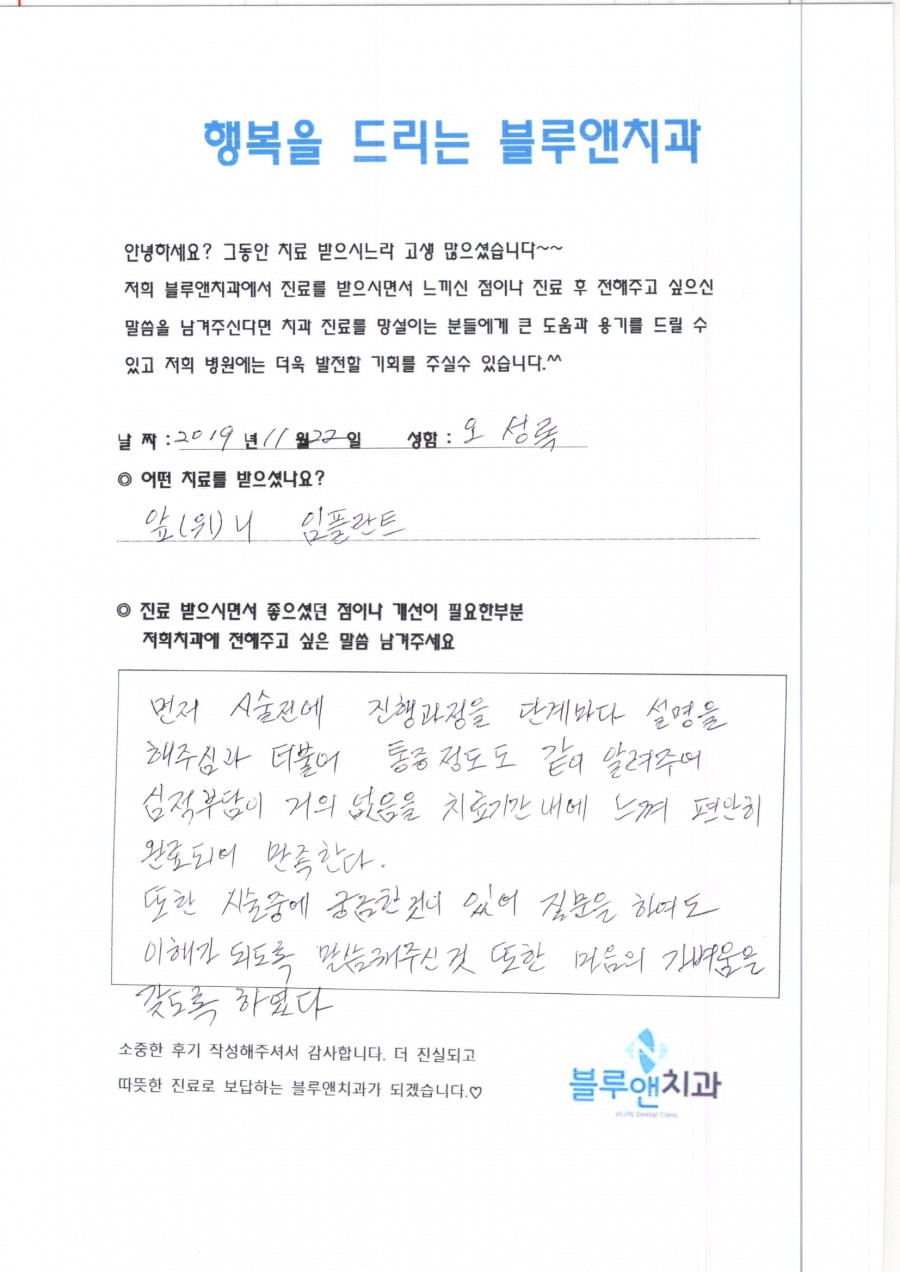 행복을 드리는 블루앤치과
안녕하세요? 그동안 치료 받으시느라 고생 많으셨습니다~~
저희 블루앤치과에서 진료를 받으시면서 느끼신 점이나 진료 후 전해주고 싶으신
말씀을 남겨주신다면 치과 진료를 망설이는 분들에게 큰 도움과 용기를 드릴 수
있고 저희 병원에는 더욱 발전할 기회를 주실수 있습니다.^^
날 짜 : 2019 년 11 월 22 일 성함 : 오 성록
◎ 어떤 치료를 받으셨나요?
앞(위)니 임플란트
◎ 진료 받으시면서 좋으셨던 점이나 개선이 필요한부분
저희치과에 전해주고 싶은 말씀 남겨주세요
먼저 시술전에 진행과정을 단계마다 설명을
해주심과 더불어 통증정도도 같이 알려주어
심적부담이 거의 없음을 치료기간내에 느껴 편안히
완료되어 만족한다.
또한 시술중에 궁금한것이 있어 질문을 하여도
이해가 되도록 말씀해주신것 또한 마음의 가벼움을
갖도록 하였다
소중한 후기 작성해주셔서 감사합니다. 더 진실되고
따뜻한 진료로 보답하는 블루앤치과가 되겠습니다.♡
블루앤치과
Dental Clinic